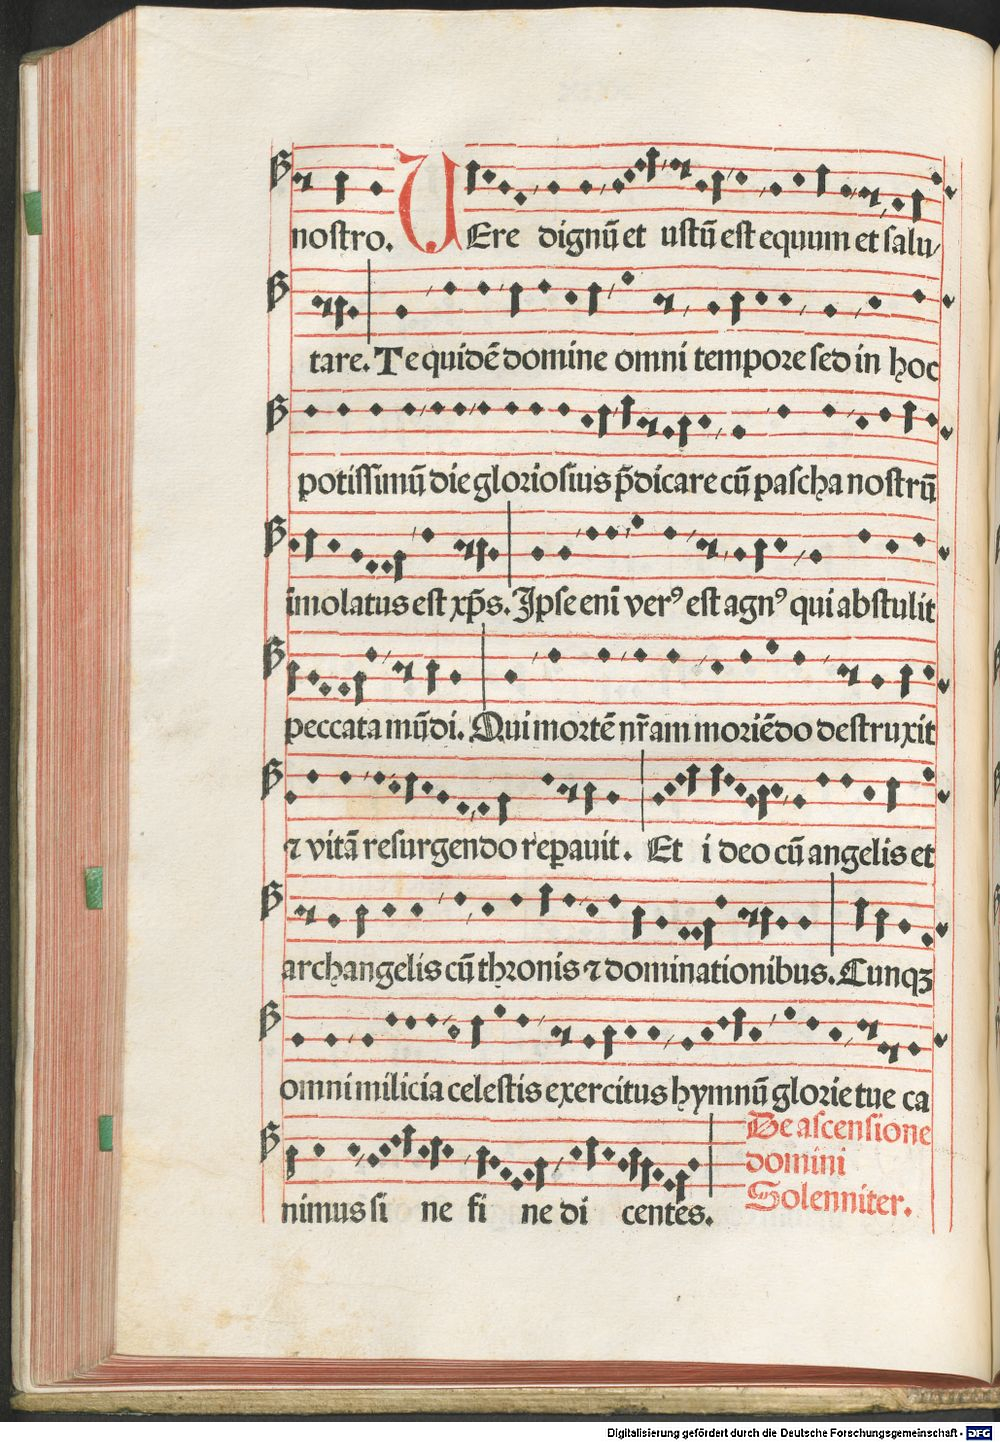 nostro. VEre dignū et iustū est equum et salu/
tare. Te quidē domine omni tempore sed in hoc
potissimū die gloriosius p̄dicare cū pascha nostrū
īmolatus est xp̄s. Ipse eni verꝰ est agnꝰ qui abstulit
peccata mūdi. Qui mortē nr̄am moriēdo destruxit
⁊ vitā resurgendo repauit. Et i deo cū angelis et
archangelis cū thronis ⁊ dominationibus. Cunqꝫ
omni milicia celestis exercitus hymnū glorie tue ca
nimus si ne fi ne di centes.
De ascensione
domini
Solenniter.
Digitalisierung gefördert durch die Deutsche Forschungsgemeinschaft - DFG